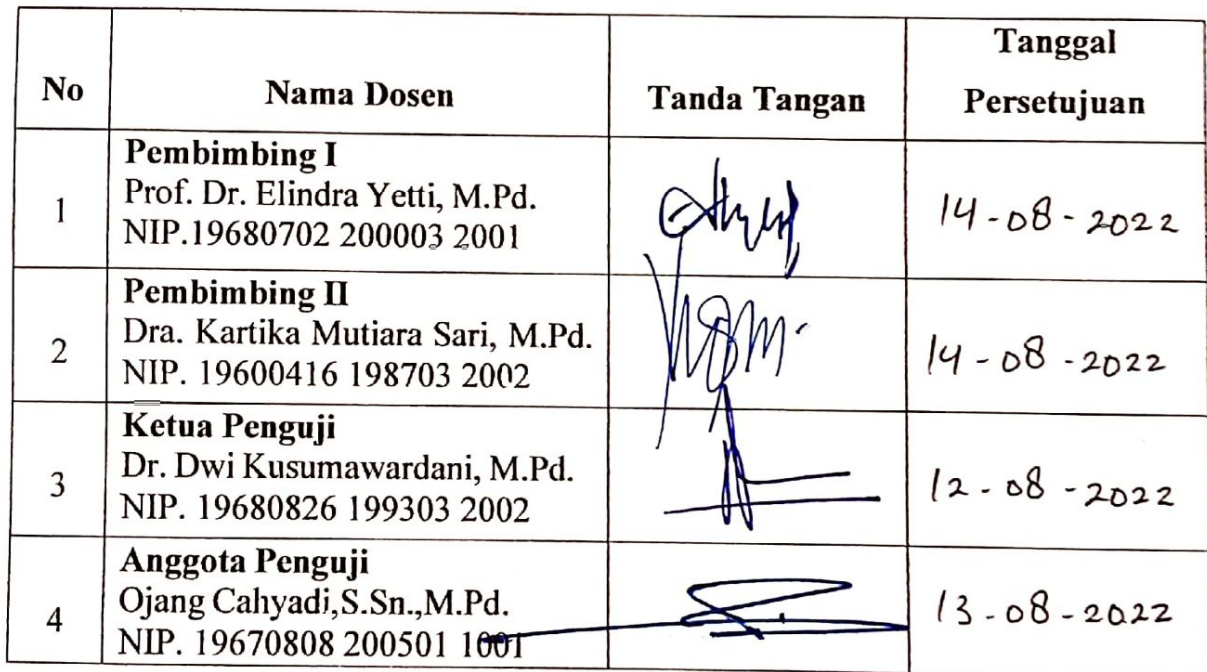 No Nama Dosen Tanda Tangan Tanggal
Persetujuan
1 Pembimbing I
Prof. Dr. Elindra Yetti, M.Pd.
NIP.19680702 200003 2001
14-08-2022
2 Pembimbing II
Dra. Kartika Mutiara Sari, M.Pd.
NIP. 19600416 198703 2002
14-08-2022
3 Ketua Penguji
Dr. Dwi Kusumawardani, M.Pd.
NIP. 19680826 199303 2002
12-08-2022
4 Anggota Penguji
Ojang Cahyadi,S.Sn.,M.Pd.
NIP. 19670808 200501 1001
13-08-2022